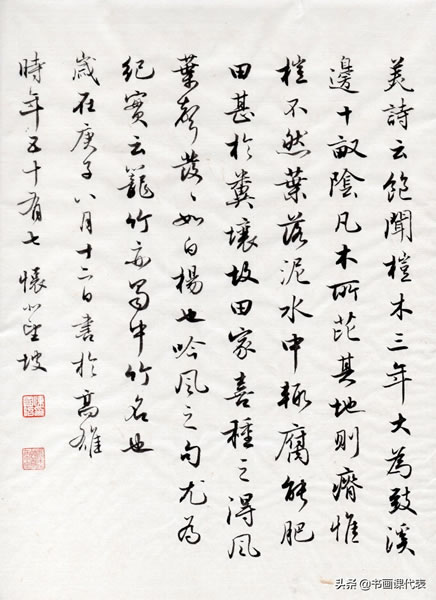 美詩云飽聞榿木三年大為致溪
邊十畝陰凡木所芘其地則瘠惟
榿不然葉落泥水中輒腐能肥
田甚於糞壤故田家喜種之得風
葉聲發々如白楊也吟風之句尤為
紀實云籠竹亦蜀中竹名也
歲在庚子八月十二日書於高雄
時年五十有七 懷
头条 @书画课代表